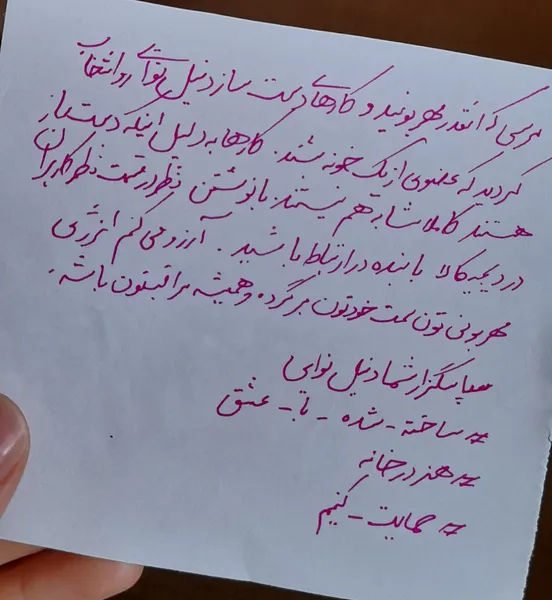 مرسی که انقدر مهربونید و کارهای دست ساز دنیل نوایی رو انتخاب
کردید که عضوی از یک خونه شد. کارها به دلیل اینکه دست ساز
هستند کاملا مشابه هم نیستند. با نوشتن نظر در قسمت نظر کاربران
در دیجی کالا با بنده در ارتباط باشید. آرزو می کنم انرژی
مهربونی تون سمت خودتون برگرده و همیشه مراقبتون باشه.
سپاسگزار شما دنیل نوایی
# ساخته - شده - با - عشق
# هنر در خانه
# حمایت - کنیم